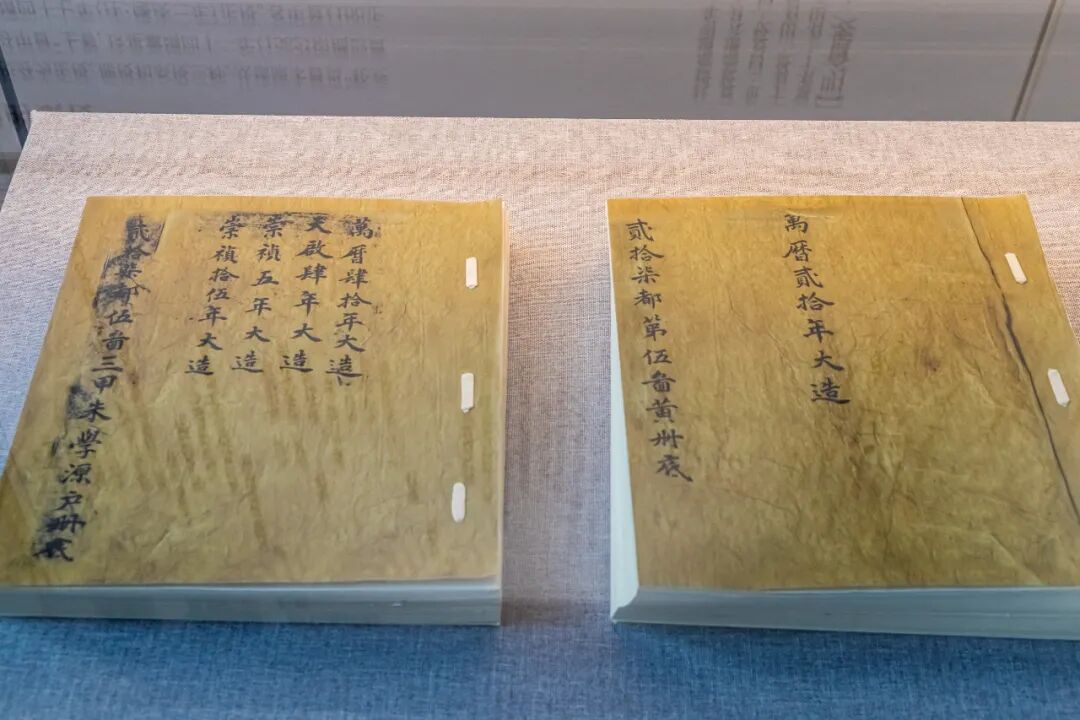 萬曆貳拾年大造
貳拾柒都第伍啚黄册底
萬曆肆拾年大造
天啟肆年大造
崇禎五年大造
崇禎拾伍年大造
貳拾柒都伍啚三甲朱學源户册底